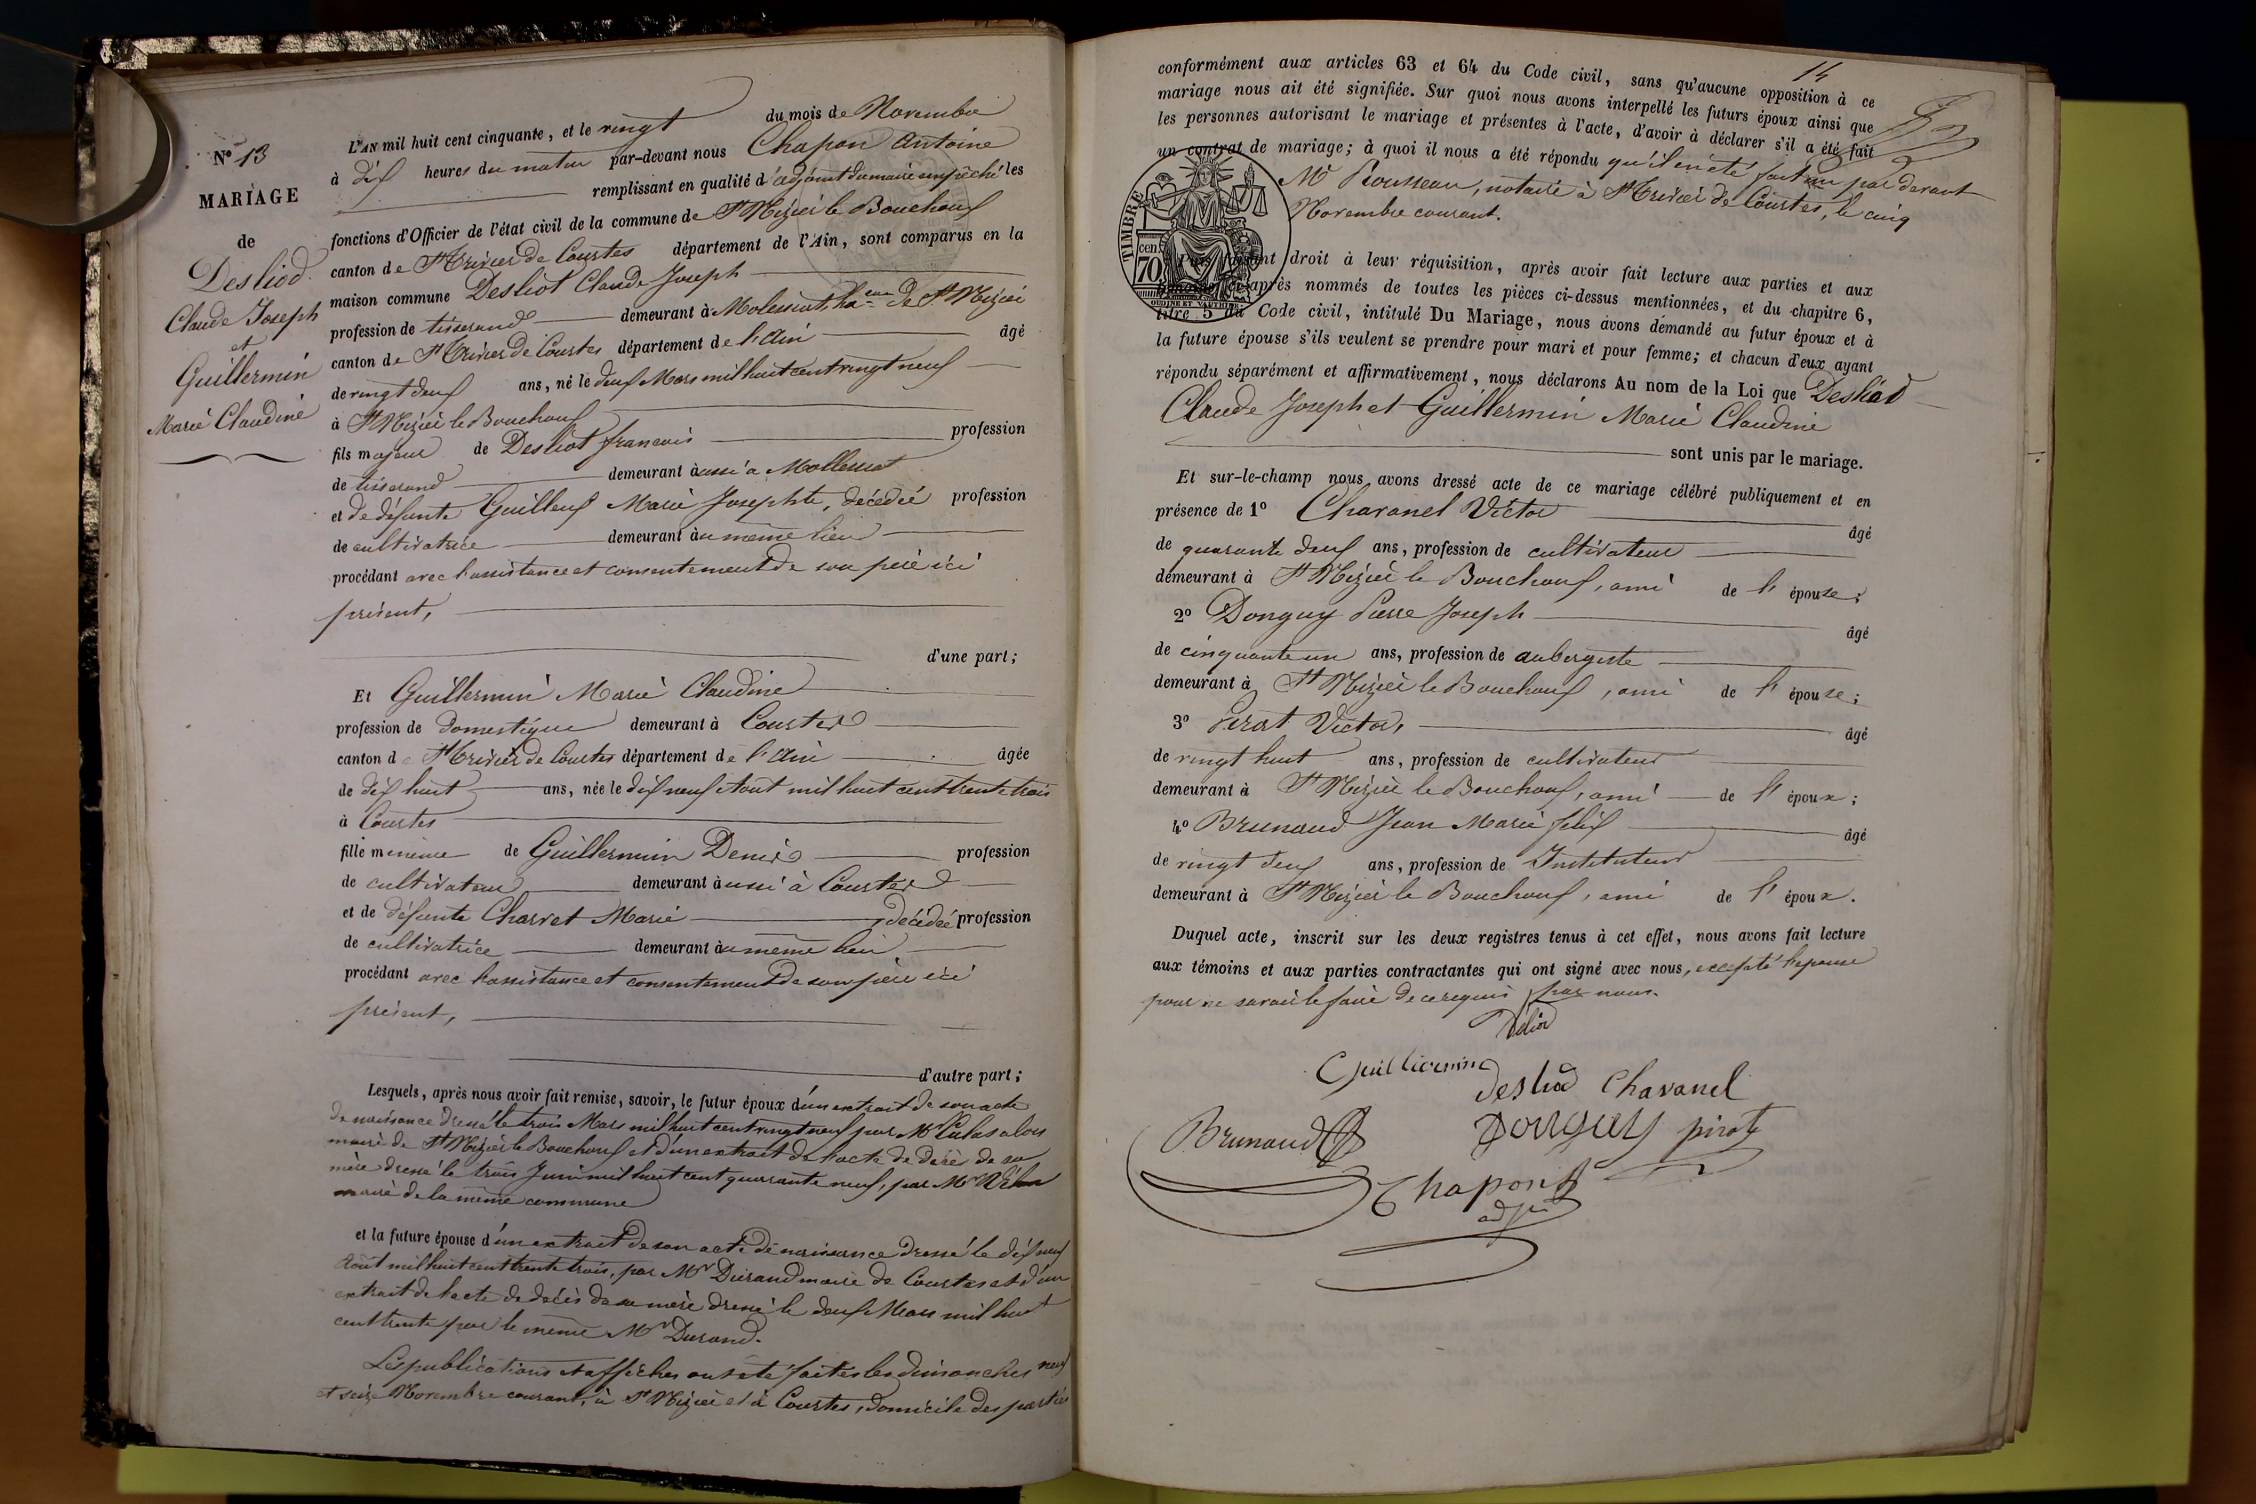 N° 13
MARIAGE
de
Desliod
Claude Joseph
et
Guillermin
Marie Claudine
L'AN mil huit cent cinquante, et le vingt du mois de Novembre
à dix heures du matin par-devant nous Chapon Antoine
remplissant en qualité d'adjoint du maire empêché les
fonctions d'Officier de l'état civil de la commune de St Nizier le Bouchoux
canton de St Trivier de Courtes département de l'Ain, sont comparus en la
maison commune Desliot Claude Joseph
profession de tisserand demeurant à de St Nizier
canton de St Trivier de Courtes département de l'Ain âgé
de vingt deux ans, né le deux Mars mil huit cent vingt neuf
à St Nizier le Bouchoux
fils majeur de Desliot francois profession
de tisserand demeurant aussi à Mollessiat
et de défunte Guilleux Marie Josephte, décédée profession
de cultivatrice demeurant au même lieu
procédant avec l'assistance et consentement de son père ici
présent,
d'une part;
Et Guillermin Marie Claudine
profession de domestique demeurant à Courtes
canton de St Trivier de Courtes département de l'Ain âgée
de dix huit ans, née le dix neuf Aout mil huit cent trente trois
à Courtes
fille mineure de Guillermin Denis profession
de cultivateur demeurant aussi à Courtes
et de défunte Charvet Marie décédée profession
de cultivatrice demeurant au même lieu
procédant avec l'assistance et consentement de son père ici
présent,
d'autre part;
Lesquels, après nous avoir fait remise, savoir, le futur époux d'un extrait de son acte
de naissance dressé le trois Mars mil huit cent vingt neuf par Mr alors
maire de St Nizier le Bouchoux et d'un extrait de l'acte de décès de sa
mère dressé le trois Juin mil huit cent quarante neuf, par Mr
maire de la même commune
et la future épouse d'un extrait de son acte de naissance dressé le dix neuf
Aout mil huit cent trente trois, par Mr Durand maire de Courtes et d'un
extrait de l'acte de décès de sa mère dressé le deux Mars mil huit
cent trente par le même Mr Durand.
Les publications et affiches ont été faites les dimanches neuf
et seize Novembre courant, à St Nizier et à Courtes, domicile des parties
14
conformément aux articles 63 et 64 du Code civil, sans qu'aucune opposition à ce
mariage nous ait été signifiée. Sur quoi nous avons interpellé les futurs époux ainsi que
les personnes autorisant le mariage et présentes à l'acte, d'avoir à déclarer s'il a été fait
un contrat de mariage; à quoi il nous a été répondu qu'il en été fait un par devant
Me Rousseau, notaire à St Trivier de Courtes, le cinq
Novembre courant.
TIMBRE
70 cen.
OUDINE ET VAUTHIER
Puis faisant droit à leur réquisition, après avoir fait lecture aux parties et aux
témoins ci-après nommés de toutes les pièces ci-dessus mentionnées, et du chapitre 6,
titre 5 du Code civil, intitulé Du Mariage, nous avons demandé au futur époux et à
la future épouse s'ils veulent se prendre pour mari et pour femme; et chacun d'eux ayant
répondu séparément et affirmativement, nous déclarons Au nom de la Loi que Desliod
Claude Joseph et Guillermin Marie Claudine
sont unis par le mariage.
Et sur-le-champ nous avons dressé acte de ce mariage célébré publiquement et en
présence de 1° Chavanel Victor âgé
de quarante deux ans, profession de cultivateur
demeurant à St Nizier le Bouchoux, ami de l'épouse;
2° Donguy Pierre Joseph âgé
de cinquante un ans, profession de aubergiste
demeurant à St Nizier le Bouchoux, ami de l'épouse;
3° Pirat Victor, âgé
de vingt huit ans, profession de cultivateur
demeurant à St Nizier le Bouchoux, ami de l'époux;
4° Brunaud Jean Marie félix âgé
de vingt deux ans, profession de Instituteur
demeurant à St Nizier le Bouchoux, ami de l'époux.
Duquel acte, inscrit sur les deux registres tenus à cet effet, nous avons fait lecture
aux témoins et aux parties contractantes qui ont signé avec nous, excepté l'épouse
pour ne savoir le faire de ce requis par nous.
Guilliermin
desliod Chavanel
Brunaud Donguy
Chapon
adjt